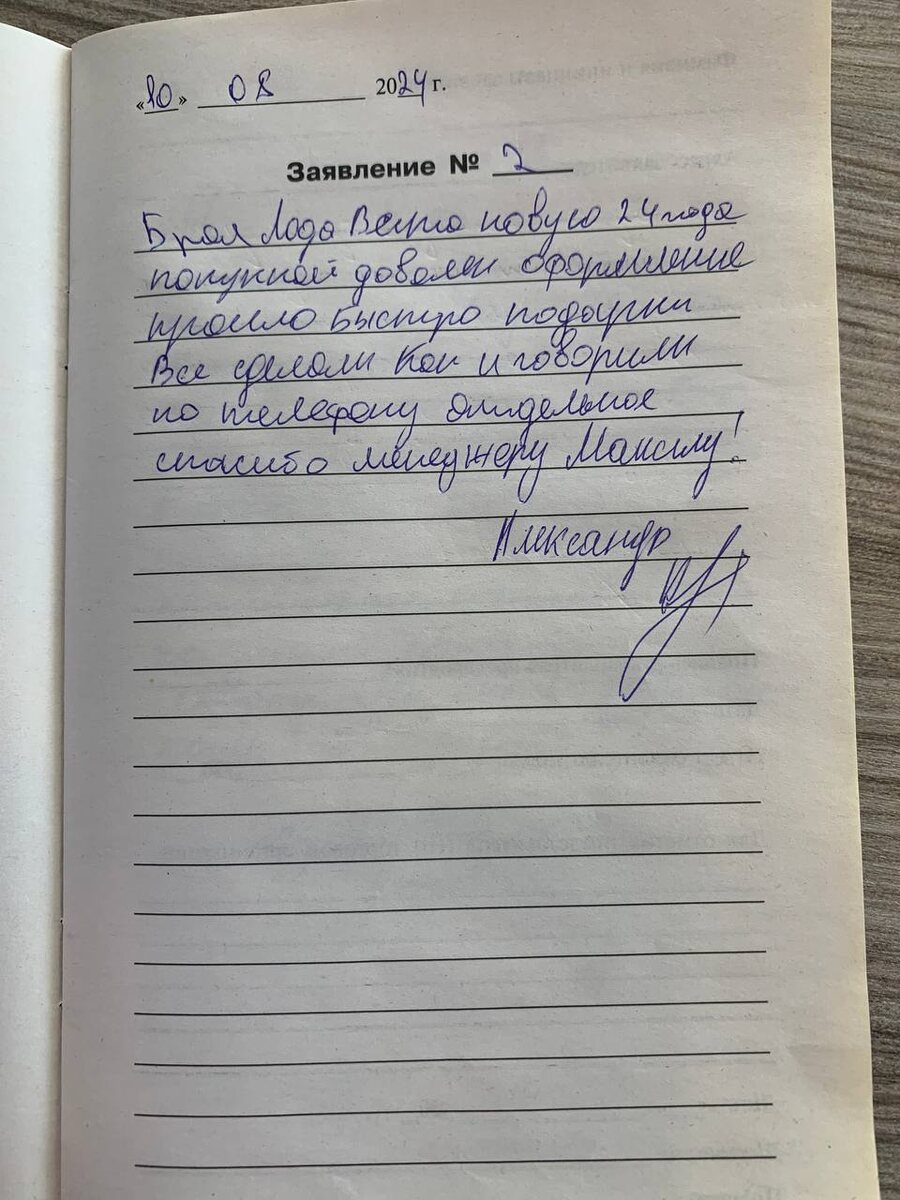 «10» 08 2024 г.
Заявление № 2
Брал Лада Веста новую 24 года
покупкой доволен оформление
прошло быстро подарки
Все сделали как и говорили
по телефону отдельное
спасибо менеджеру Максиму!
Александр